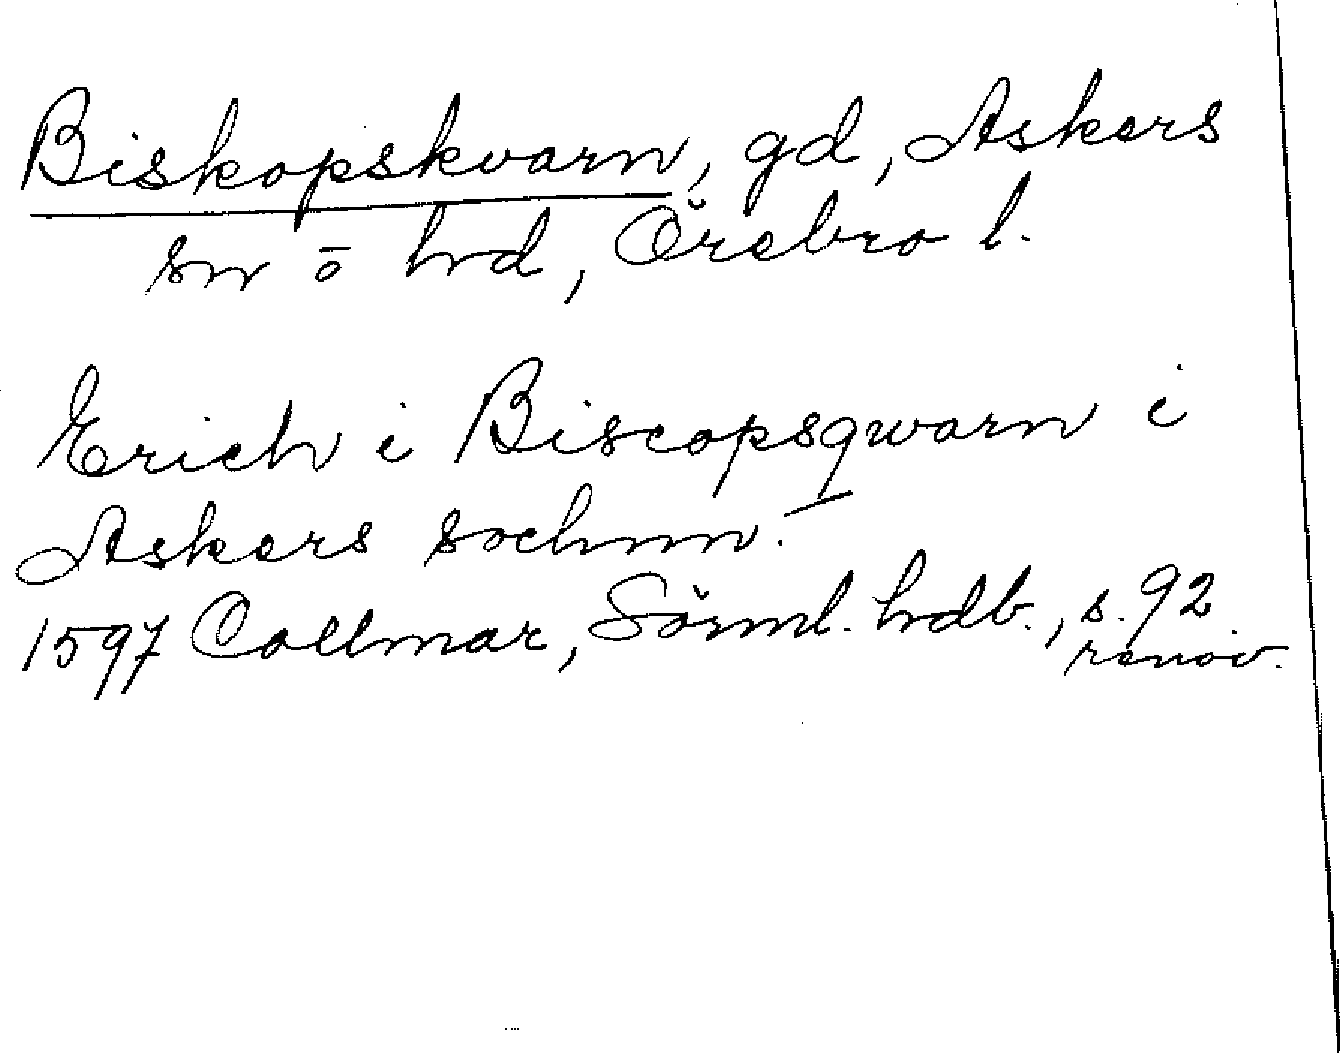 Biskopskvarn, gd, Askers
sn ō hd, Örebro l.
Erich i Biscopsqwarn i
Askers sochnn.
1597 Collmar, Sörml. hdb., s. 92
renov.